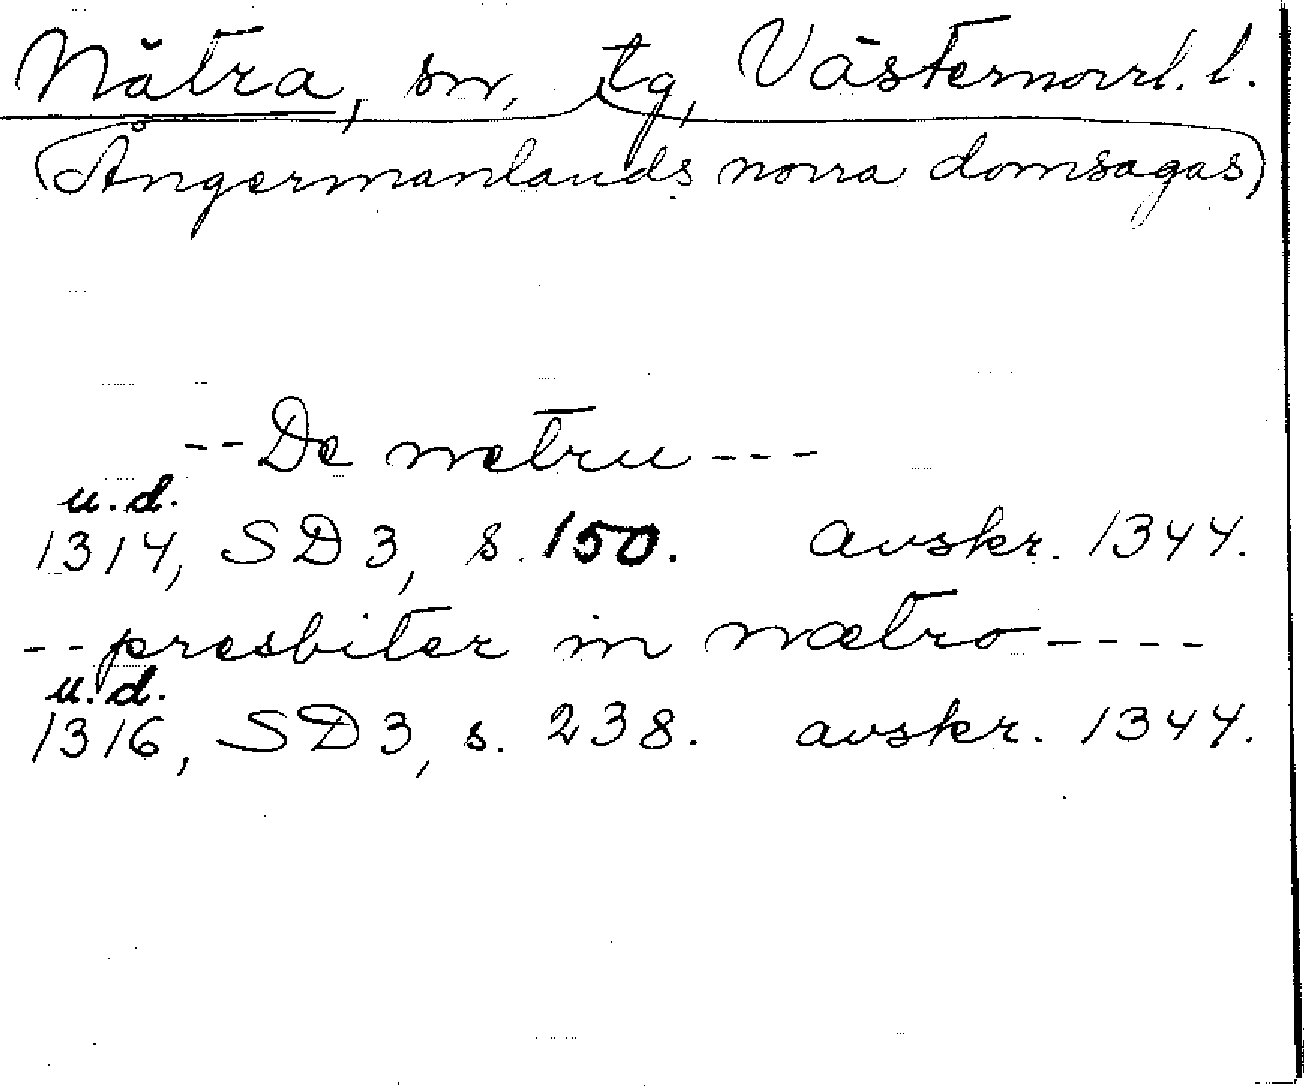 Nätra, sn, tg, Västernorrl. l.
(Ångermanlands norra domsagas)
-- De nætru ---
u.d.
1314, SD 3, s. 150. avskr. 1344.
-- presbiter in nætro ----
u.d.
1316, SD 3, s. 238. avskr. 1344.